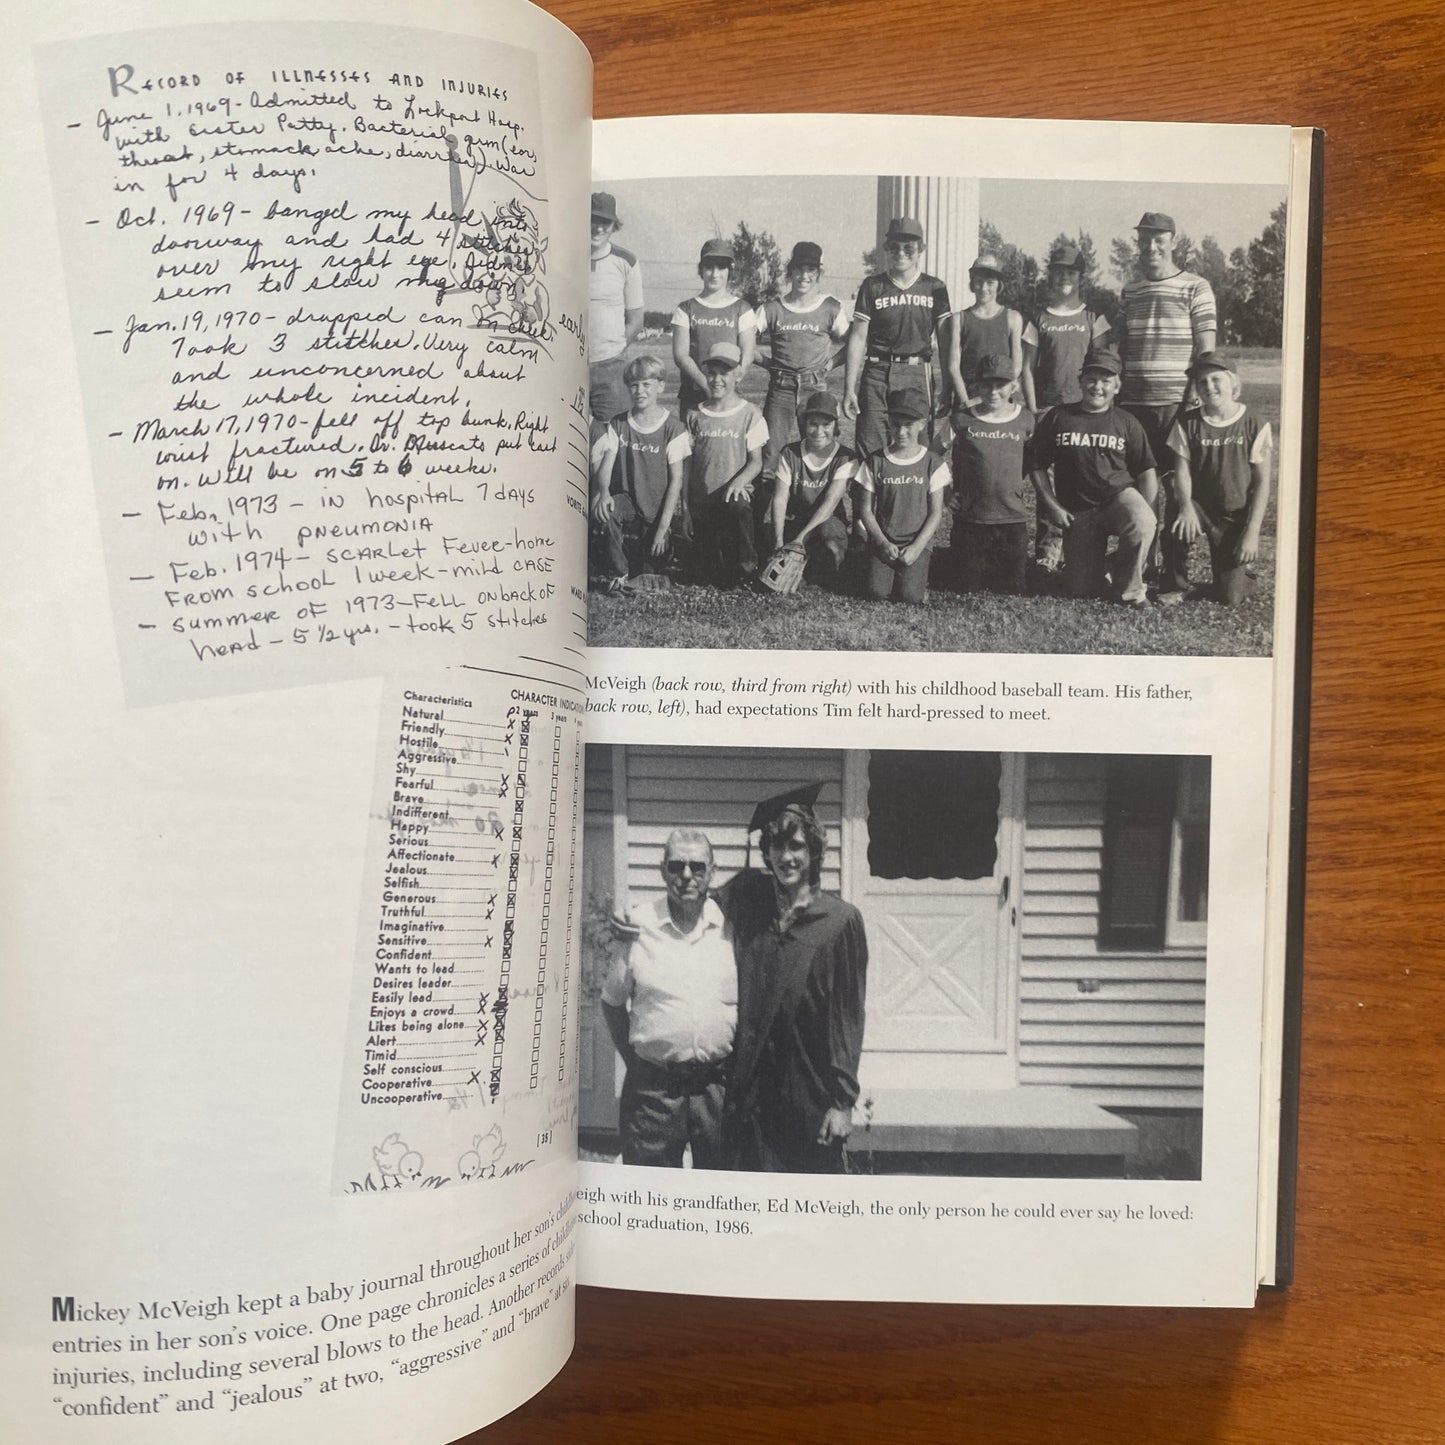 RECORD OF ILLNESSES AND INJURIES
- June 1, 1969- Admitted to Lockport Hosp.
with sister Patty. Bacterial germ (ear,
throat, stomack ache, diarrhea). Was
in for 4 days.
- Oct. 1969- banged my head into
doorway and had 4 stitches
over my right eye. Didn't
seem to slow me down.
- Jan. 19, 1970- dropped can on cheek.
Took 3 stitches. Very calm
and unconcerned about
the whole incident.
- March 17, 1970- fell off top bunk. Right
wrist fractured. Dr. put cast
on. Will be on 5 to 6 weeks.
- Feb. 1973 - in hospital 7 days
with pneumonia
- Feb. 1974 - scarlet Fever-home
From school 1 week - mild case
- summer of 1973-Fell on back of
head - 5 1/2 yrs. - took 5 stitches
early
Characteristics
CHARACTER
2 years
3 years
Natural
Friendly
Hostile
Aggressive
Shy
Fearful
Brave
Indifferent
Happy
Serious
Affectionate
Jealous
Selfish
Generous
Truthful
Imaginative
Sensitive
Confident
Wants to lead
Desires leader
Easily lead
Enjoys a crowd
Likes being alone
Alert
Timid
Self conscious
Cooperative
Uncooperative
[35]
Mickey McVeigh kept a baby journal throughout her son's
entries in her son's voice. One page chronicles a series of
injuries, including several blows to the head. Another records
"confident" and "jealous" at two, "aggressive" and "brave" at six.
SENATORS
Senators
Senators
Senators
Senators
Senators
Senators
Senators
Senators
Senators
SENATORS
Senators
McVeigh (back row, third from right) with his childhood baseball team. His father,
back row, left), had expectations Tim felt hard-pressed to meet.
eigh with his grandfather, Ed McVeigh, the only person he could ever say he loved:
school graduation, 1986.